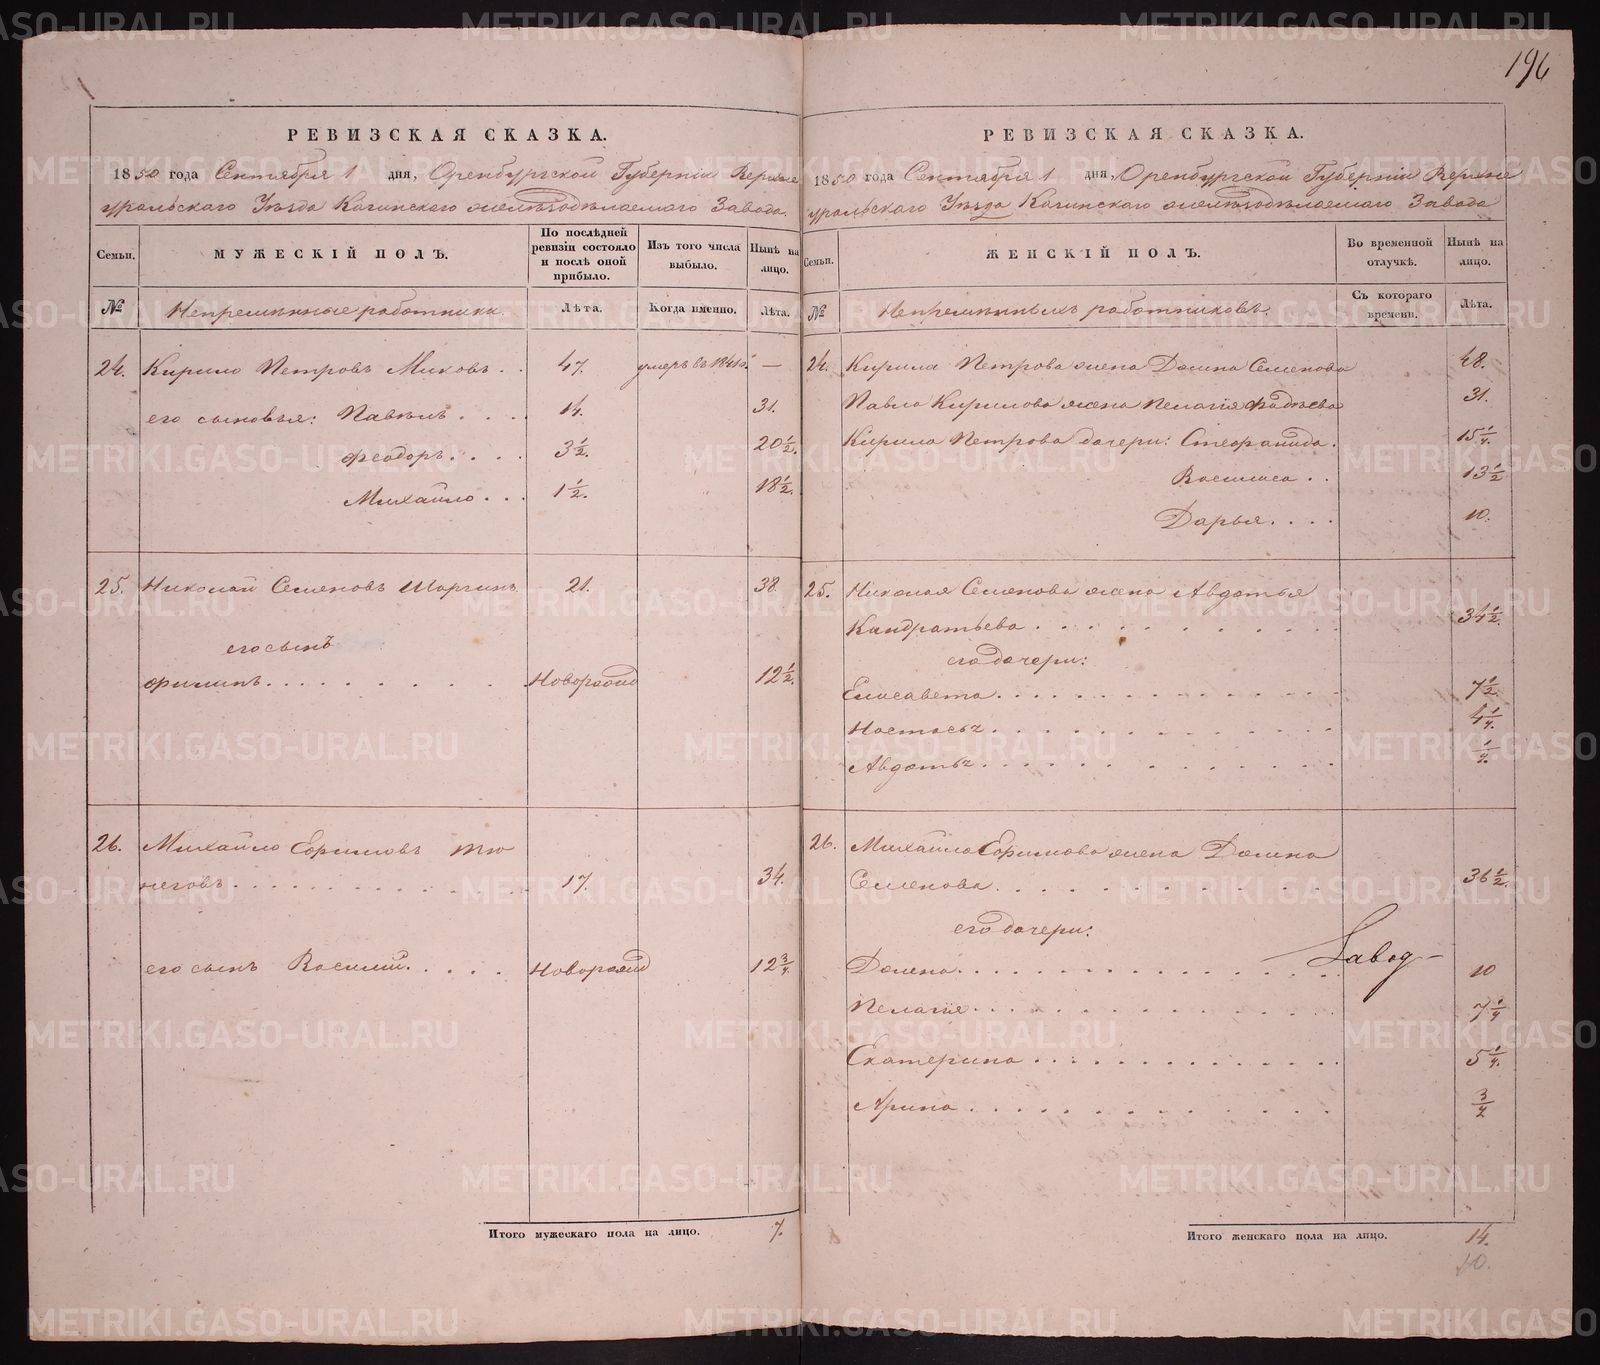 196
РЕВИЗСКАЯ СКАЗКА.
1850 года Сентября 1 дня, Оренбургской Губерніи Верхне
уральскаго Уѣзда Кагинскаго желѣзодѣлаемаго Завода.
Семьи.
МУЖЕСКІЙ ПОЛЪ.
По послѣдней ревизіи состояло и послѣ оной прибыло.
Изъ того числа выбыло.
Нынѣ на лицо.
№
Непремѣнные работники.
Лѣта.
Когда именно.
Лѣта.
24. Кирило Петровъ Миковъ. . 47. умеръ въ 1841 —
его сыновья: Павелъ. . . . 14. 31.
Ѳеодоръ. . . . 3 1/2. 20 1/2.
Михайло. . . 1 1/2. 18 1/2.
25. Николай Семеновъ Шаргинъ 21. 38
его сынъ
Филипъ. . . . . . . . . Новорожд 12 1/2.
26. Михайло Ефимовъ Тю
неговъ. . . . . . . . . . . . . 17. 34.
его сынъ Василій. . . . . Новорожд 12 3/4.
Итого мужескаго пола на лицо. 7.
РЕВИЗСКАЯ СКАЗКА.
1850 года Сентября 1 дня, Оренбургской Губерніи Верхне
уральскаго Уѣзда Кагинскаго желѣзодѣлаемаго Завода
Семьи.
ЖЕНСКІЙ ПОЛЪ.
Во временной отлучкѣ.
Нынѣ на лицо.
№
Непремѣнныхъ работниковъ.
Съ котораго времени.
Лѣта.
24. Кирила Петрова жена Домна Семенова 48.
Павла Кирилова жена Пелагія Фадѣева 31.
Кирила Петрова дочери: Стефанида. 15 1/4.
Василиса. . 13 1/2
Дарья. . . . 10.
25. Николая Семенова жена Авдотья
Кандратьева. . . . . . . . . . . 34 1/2.
его дочери:
Елисавета. . . . . . . . . . . . 7 1/2
Настасья. . . . . . . . . . . . 4 1/4.
Авдотья. . . . . . . . . . . . 1/4.
26. Михайла Ефимова жена Домна
Семенова. . . . . . . . . . . . 36 1/2.
его дочери:
Домна. . . . . . . . . . . . 10
Завод-
Пелагія. . . . . . . . . . . . 7 1/4
Екатерина. . . . . . . . . . . 5 1/4.
Арина. . . . . . . . . . . . 3/4
Итого женскаго пола на лицо. 14.
10.
METRIKI.GASO-URAL.RU